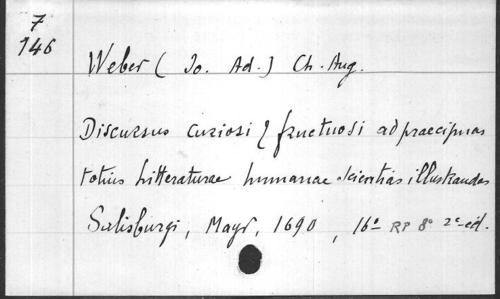 7
146
Weber (Jo. Ad.) Ch. Aug.
Discursus curiosi & fructuosi ad praecipuas
totius litteraturae humanae scientias illustrandas
Salisburgi, Mayr, 1690, 16° RP 8° 2e éd.